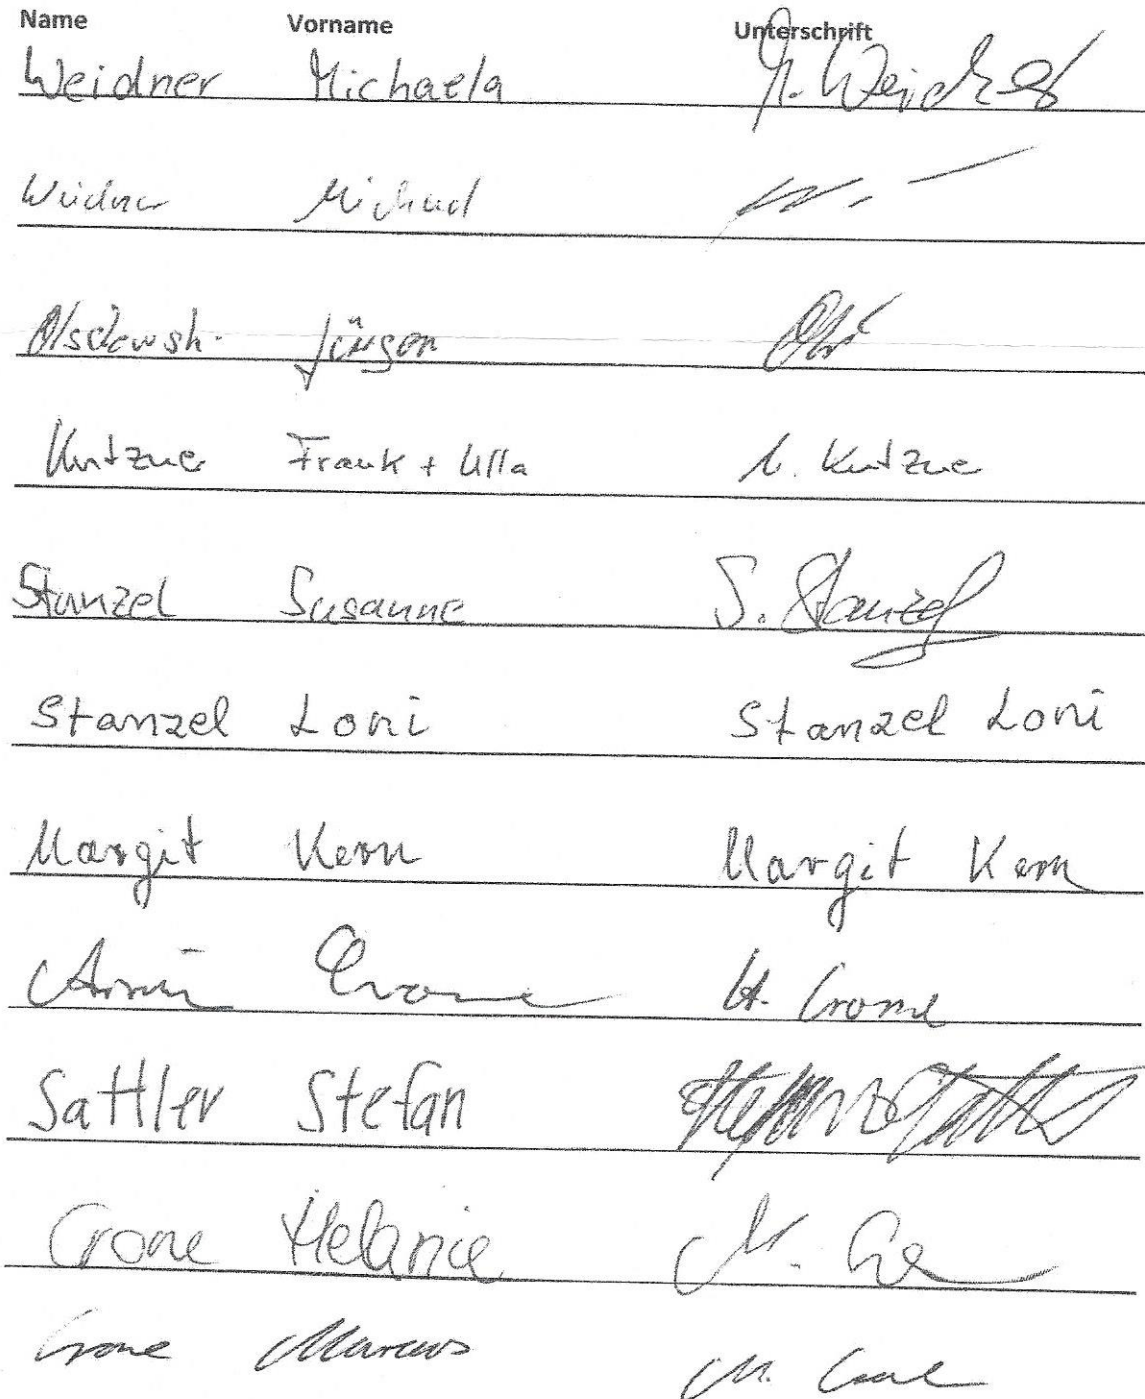 Name Vorname Unterschrift
Weidner Michaela M. Weidner
Weidner Michael
Jürgen
Kutzner Frank + Ulla U. Kutzner
Stanzel Susanne S. Stanzel
Stanzel Loni Stanzel Loni
Margit Kern Margit Kern
Armin Crone A. Crone
Sattler Stefan Stefan Sattler
Crone Melanie M. Crone
Crone Marcus M. Crone